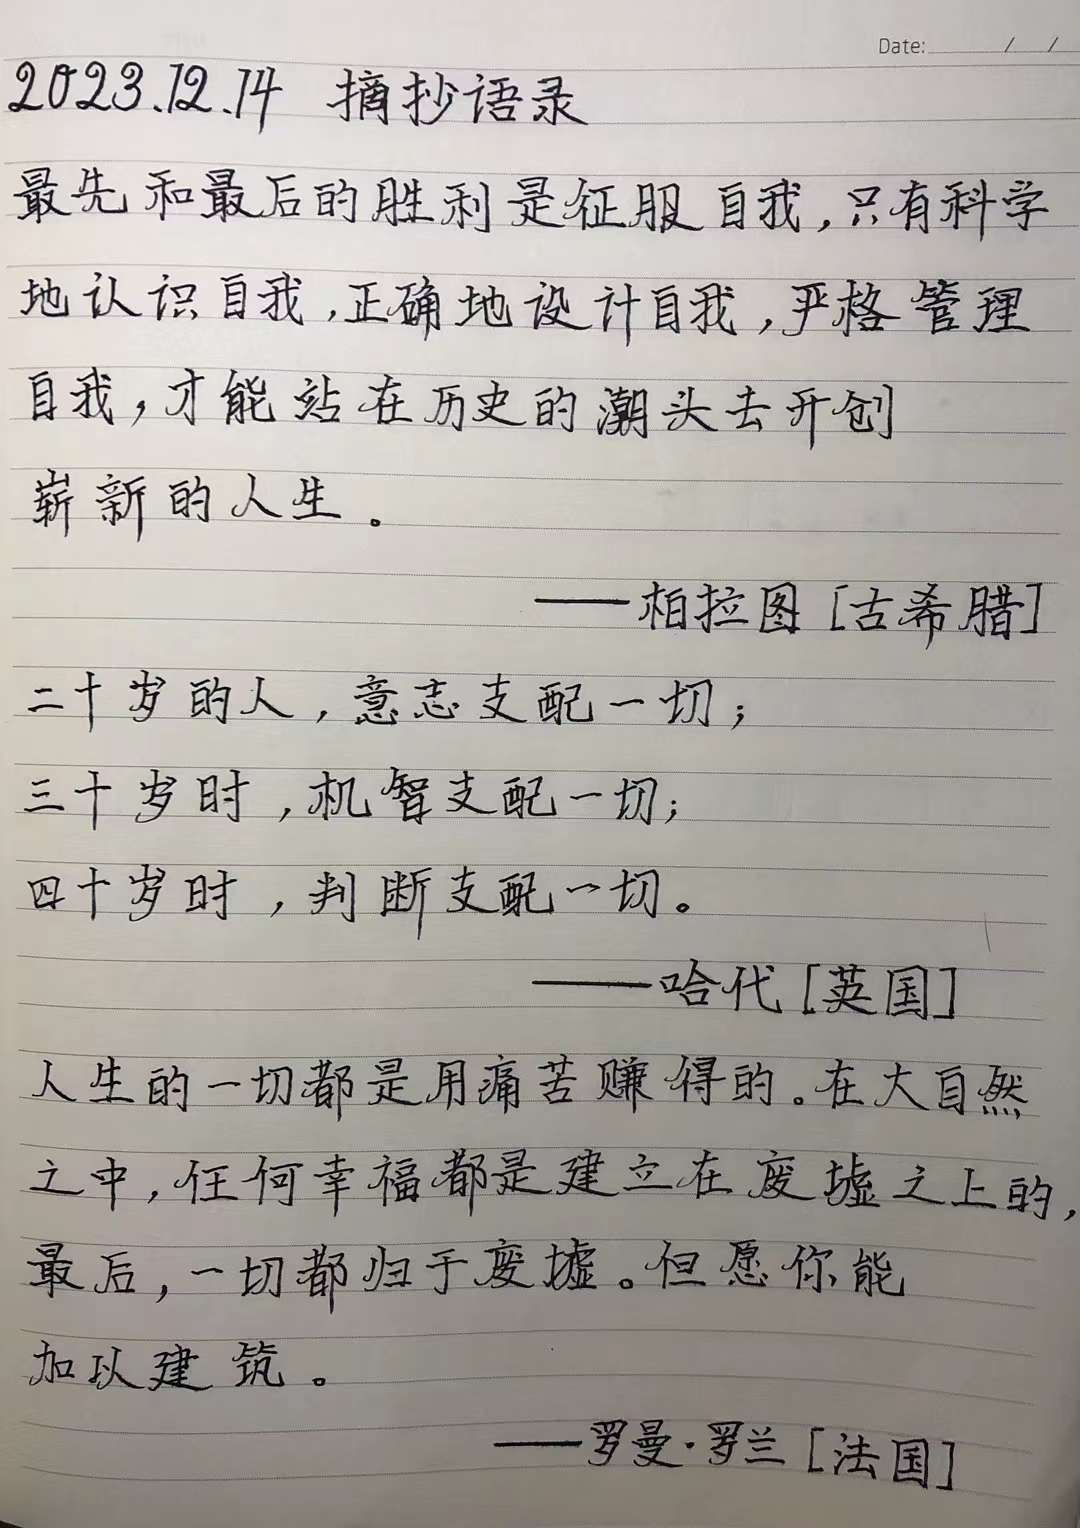 Date: / /
2023.12.14 摘抄语录
最先和最后的胜利是征服自我，只有科学
地认识自我，正确地设计自我，严格管理
自我，才能站在历史的潮头去开创
崭新的人生。
——柏拉图［古希腊］
二十岁的人，意志支配一切；
三十岁时，机智支配一切；
四十岁时，判断支配一切。
——哈代［英国］
人生的一切都是用痛苦赚得的。在大自然
之中，任何幸福都是建立在废墟之上的，
最后，一切都归于废墟。但愿你能
加以建筑。
——罗曼·罗兰［法国］